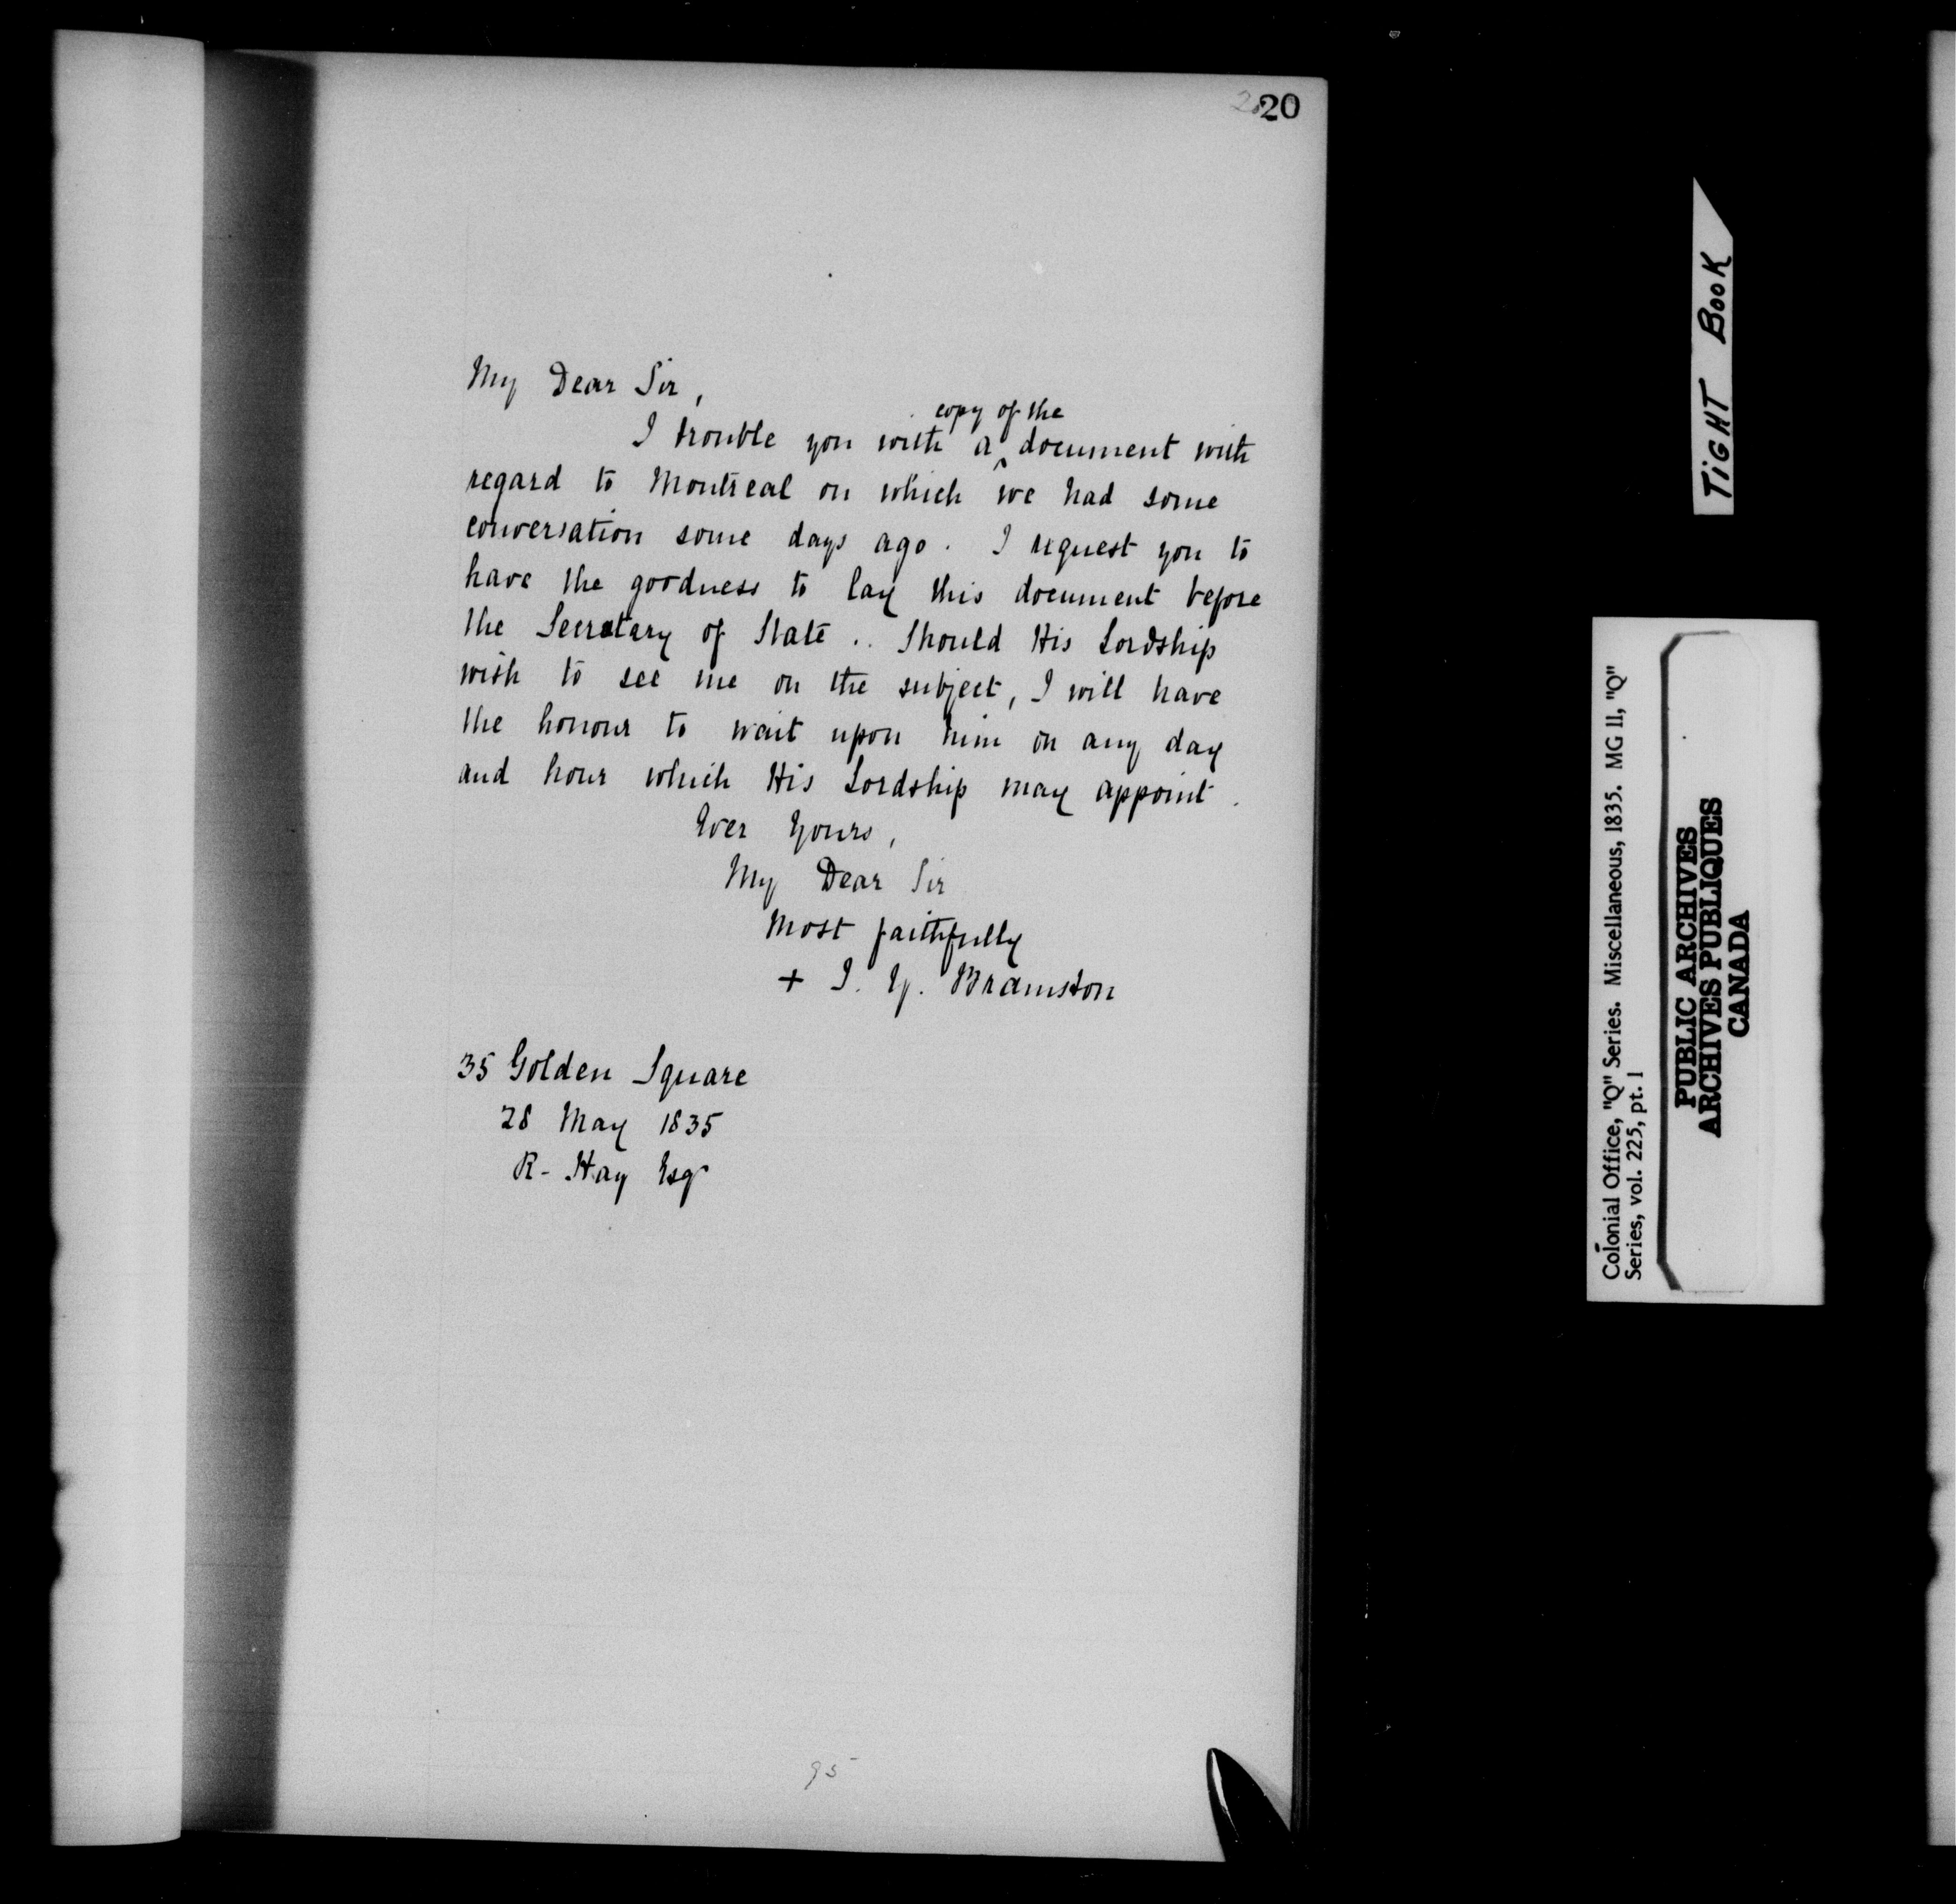 20
My Dear Sir,
copy of the
I trouble you with a ^ document with
regard to Montreal on which we had some
conversation some days ago. I request you to
have the goodness to lay this document before
the Secretary of State .. Should His Lordship
wish to see me on the subject, I will have
the honour to wait upon him on any day
and hour which His Lordship may appoint.
Ever Yours,
My Dear Sir
Most faithfully
+ J. Y. Bramston
35 Golden Square
28 May 1835
R- Hay Esqr
95
TIGHT BOOK
Colonial Office, "Q" Series. Miscellaneous, 1835. MG 11, "Q"
Series, vol. 225, pt. 1
PUBLIC ARCHIVES
ARCHIVES PUBLIQUES
CANADA